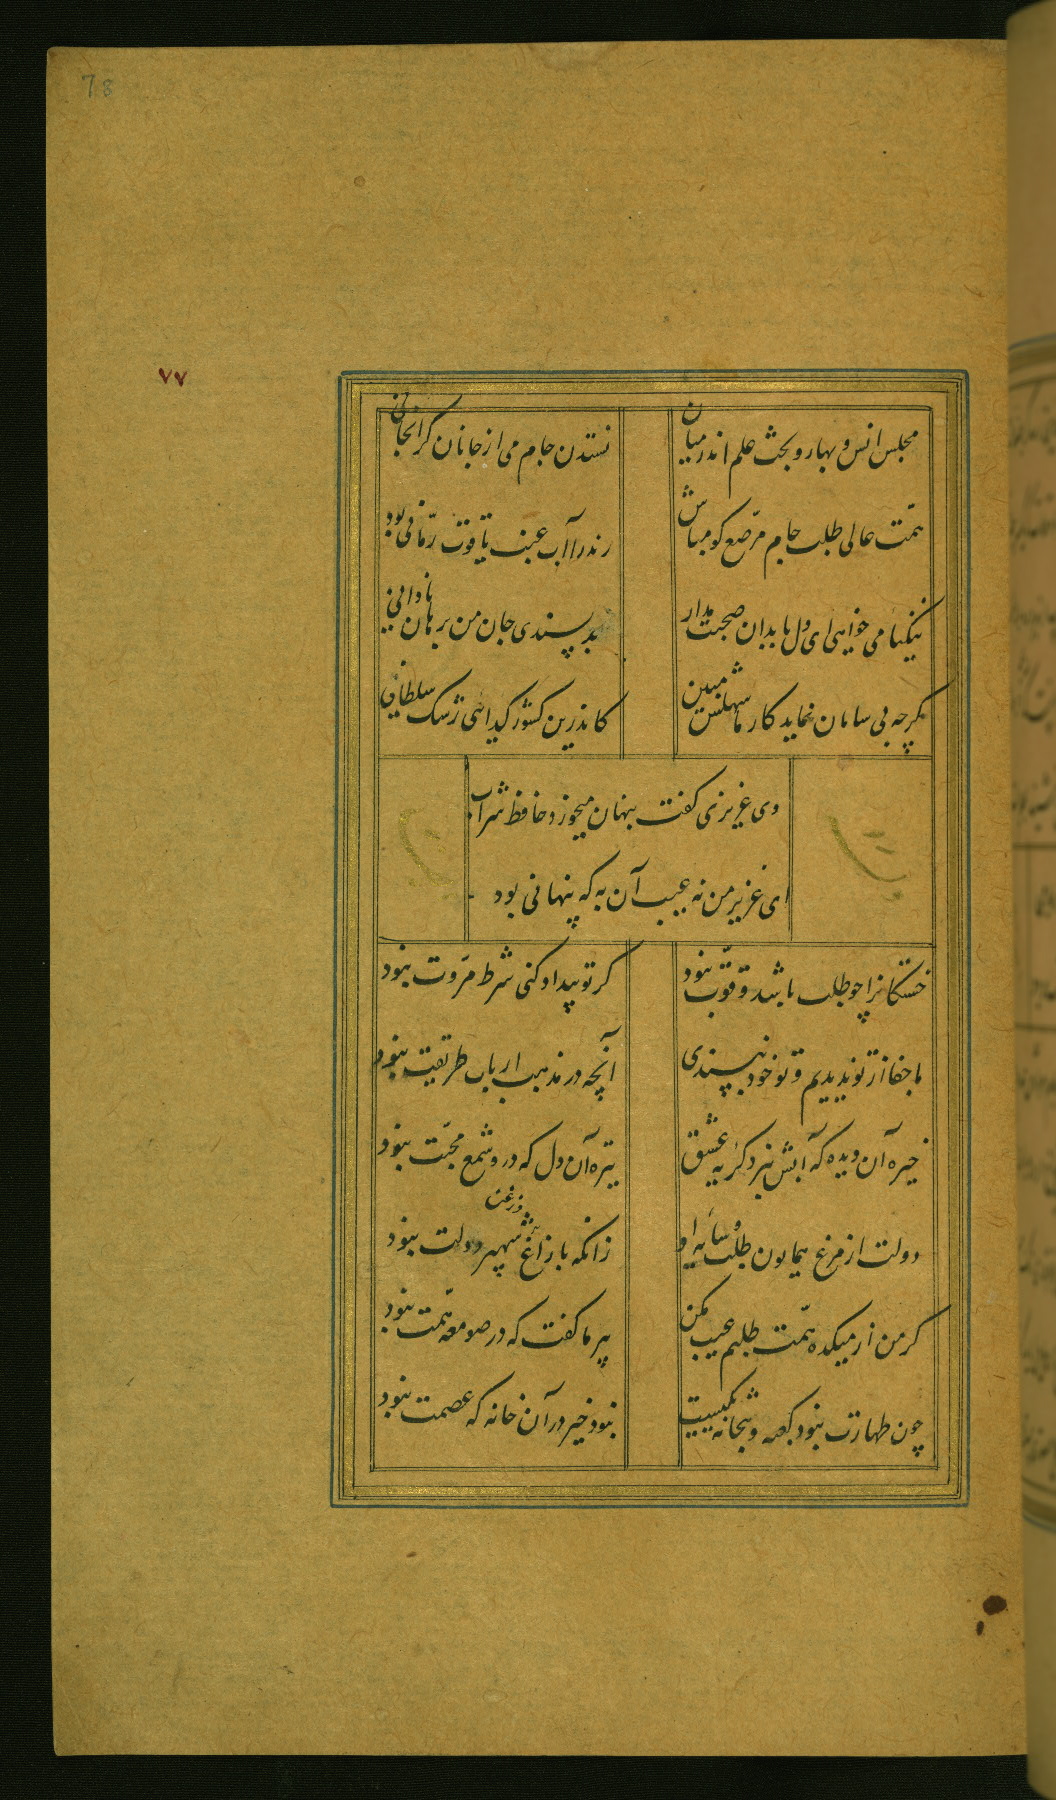 78
۷۷
مجلس انس و بهار و بحث علم اندر میان
نستدن جام می از جانان گرانجانی
همّت عالی طلب جام مرّصع کو مباش
رند را آب عنب یاقوت رمّانی بود
نیکنامی خواهی ای دل با بدان صحبت مدار
بد پسندی جان من برهان نادانی
گرچه بی سامان نماید کار ما سهلش مبین
کاندرین کشور گدائی رشک سلطانی
دی عزیزی گفت پنهان میخورد حافظ شراب
ای عزیز من نه عیب آن به که پنهانی بود
خستگانرا چو طلب باشد و قوّت نبود
گر تو بیداد کنی شرط مروّت نبود
ما جفا از تو ندیدیم و تو خود نپسندی
آنچه در مذهب ارباب طریقت نبود
خیره آن دیده که آبش نبرد گریه عشق
تیره آن دل که درو شمع محبّت نبود
دولت از مرغ همایون طلب و سایه او
زانکه با زاغ و زغن شهپر دولت نبود
گر من از میکده همّت طلبم عیب مکن
پیر ما گفت که در صومعه همّت نبود
چون طهارت نبود کعبه و بتخانه یکیست
نبود خیر در آن خانه که عصمت نبود